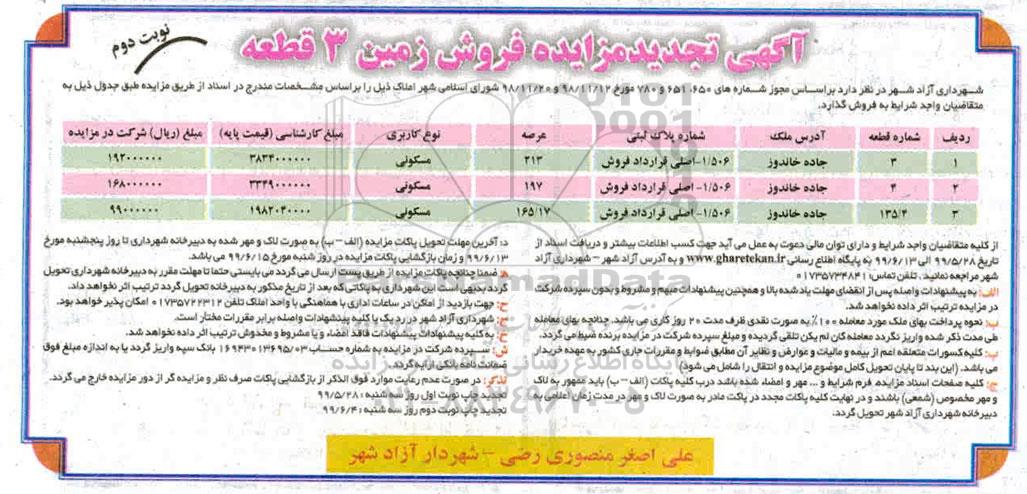 آگهی تجدیدمزایده فروش زمین ۳ قطعه
نوبت دوم
شـهرداری آزاد شـهر در نظر دارد براسـاس مجوز شـماره های ۶۵۰، ۶۵۱ و ۷۸۰ مورخ ۹۸/۱۱/۱۲ و ۹۸/۱۱/۲۰ شورای اسلامی شهر املاک ذیل را براساس مشـخصات مندرج در اسناد از طریق مزایده طبق جدول ذیل به
متقاضیان واجد شرایط به فروش گذارد.
ردیف شماره قطعه آدرس ملک شماره پلاک ثبتی عرصه نوع کاربری مبلغ کارشناسی (قیمت پایه) مبلغ (ریال) شرکت در مزایده
۱ ۳ جاده خاندوز ۱/۵۰۶-اصلی قرارداد فروش ۲۱۳ مسکونی ۳۸۳۴۰۰۰۰۰۰ ۱۹۲۰۰۰۰۰۰
۲ ۴ جاده خاندوز ۱/۵۰۶- اصلی قرارداد فروش ۱۹۷ مسکونی ۳۳۴۹۰۰۰۰۰۰ ۱۶۸۰۰۰۰۰۰
۳ ۱۳۵/۴ جاده خاندوز ۱/۵۰۶- اصلی قرارداد فروش ۱۶۵/۱۷ مسکونی ۱۹۸۲۰۴۰۰۰۰ ۹۹۰۰۰۰۰۰
از کلیه متقاضیان واجد شرایط و دارای توان مالی دعوت به عمل می آید جهت کسب اطلاعات بیشتر و دریافت اسناد از
تاریخ ۹۹/۵/۲۸ الی ۹۹/۶/۱۳ به پایگاه اطلاع رسانی www.gharetekan.ir و به آدرس آزاد شهر – شهرداری آزاد
شهر مراجعه نمایید. تلفن تماس: ۰۱۷۳۵۷۳۴۸۴۱
الف: به پیشنهادات واصله پس از انقضای مهلت یاد شده بالا و همچنین پیشنهادات مبهم و مشروط و بدون سپرده شرکت
در مزایده ترتیب اثر داده نخواهد شد.
ب: نحوه پرداخت بهای ملک مورد معامله ۱۰۰٪ به صورت نقدی ظرف مدت ۲۰ روز کاری می باشد. چنانچه بهای معامله
طی مدت ذکر شده واریز نگردد معامله کان لم یکن تلقی گردیده و مبلغ سپرده شرکت در مزایده برنده ضبط می گردد.
پ: کلیه کسورات متعلقه اعم از بیمه و مالیات و عوارض و نظایر آن مطابق ضوابط و مقررات جاری کشور به عهده خریدار
می باشد. (این بند تا پایان تحویل کامل موضوع مزایده و انتقال را شامل می شود)
ج: کلیه صفحات اسناد مزایده، فرم شرایط و ... مهر و امضاء شده باشد درب کلیه پاکات (الف – ب) باید ممهور به لاک
و مهر مخصوص (شمعی) باشند و در نهایت کلیه پاکات مجدد در پاکت مادر به صورت لاک و مهر در مدت زمان اعلامی به
دبیرخانه شهرداری آزاد شهر تحویل گردد.
د: آخرین مهلت تحویل پاکات مزایده (الف – ب) به صورت لاک و مهر شده به دبیرخانه شهرداری تا روز پنجشنبه مورخ
۹۹/۶/۱۳ و زمان بازگشایی پاکات مزایده در روز شنبه مورخ ۹۹/۶/۱۵ می باشد.
ضمنا چنانچه پاکات مزایده از طریق پست ارسال می گردد می بایستی حتما تا مهلت مقرر به دبیرخانه شهرداری تحویل
گردد بدیهی است این شهرداری به پاکاتی که بعد از تاریخ مذکور به دبیرخانه تحویل گردد ترتیب اثر نخواهد داد.
جهت بازدید از اماکن در ساعات اداری با هماهنگی با واحد املاک تلفن ۰۱۷۳۵۷۲۲۳۱۲ امکان پذیر خواهد بود.
شهرداری آزاد شهر در رد یک یا کلیه پیشنهادات واصله برابر مقررات مختار است.
به کلیه پیشنهادات پیشنهادات فاقد امضاء و یا مشروط و مخدوش ترتیب اثر داده نخواهد شد.
سـپرده شرکت در مزایده به شماره حساب ۱۶۹۴۳۰۱۳۶۹۵/۰۳ بانک سپه واریز گردد یا به اندازه مبلغ فوق
ضمانت نامه بانکی ارایه گردد.
تذکر: در صورت عدم رعایت موارد فوق الذکر از بازگشایی پاکات صرف نظر و مزایده گر از دور مزایده خارج می گردد.
تجدید چاپ نوبت اول روز سه شنبه : ۹۹/۵/۲۸
تجدید چاپ نوبت دوم روز سه شنبه : ۹۹/۶/۴
علی اصغر منصوری رضی – شهردار آزاد شهر